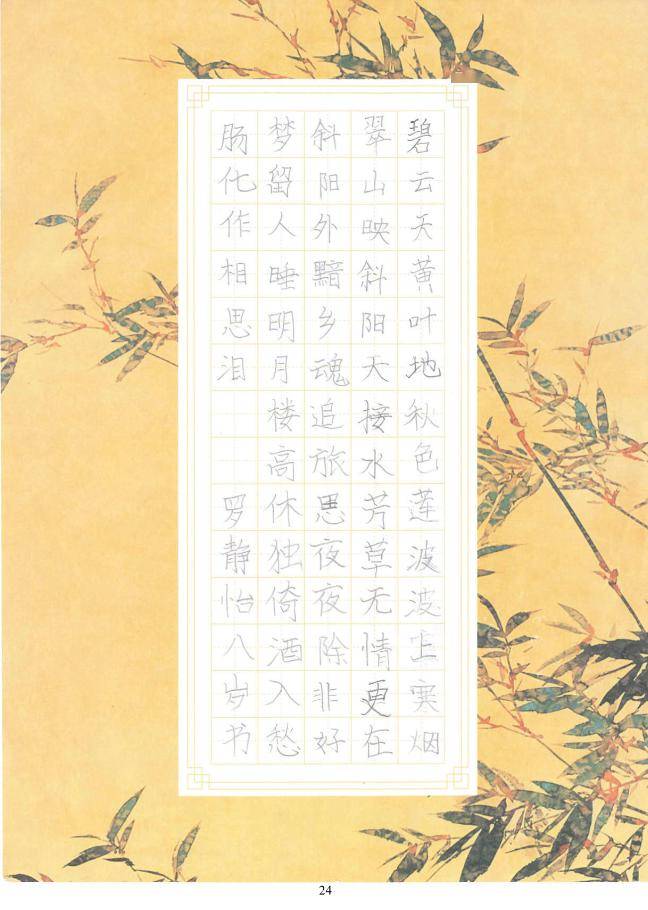 碧云天黄叶地秋色莲波波上寒烟
翠山映斜阳天接水芳草无情更在
斜阳外黯乡魂追旅思夜夜除非好
梦留人睡明月楼高休独倚酒入愁
肠化作相思泪 罗静怡八岁书
24